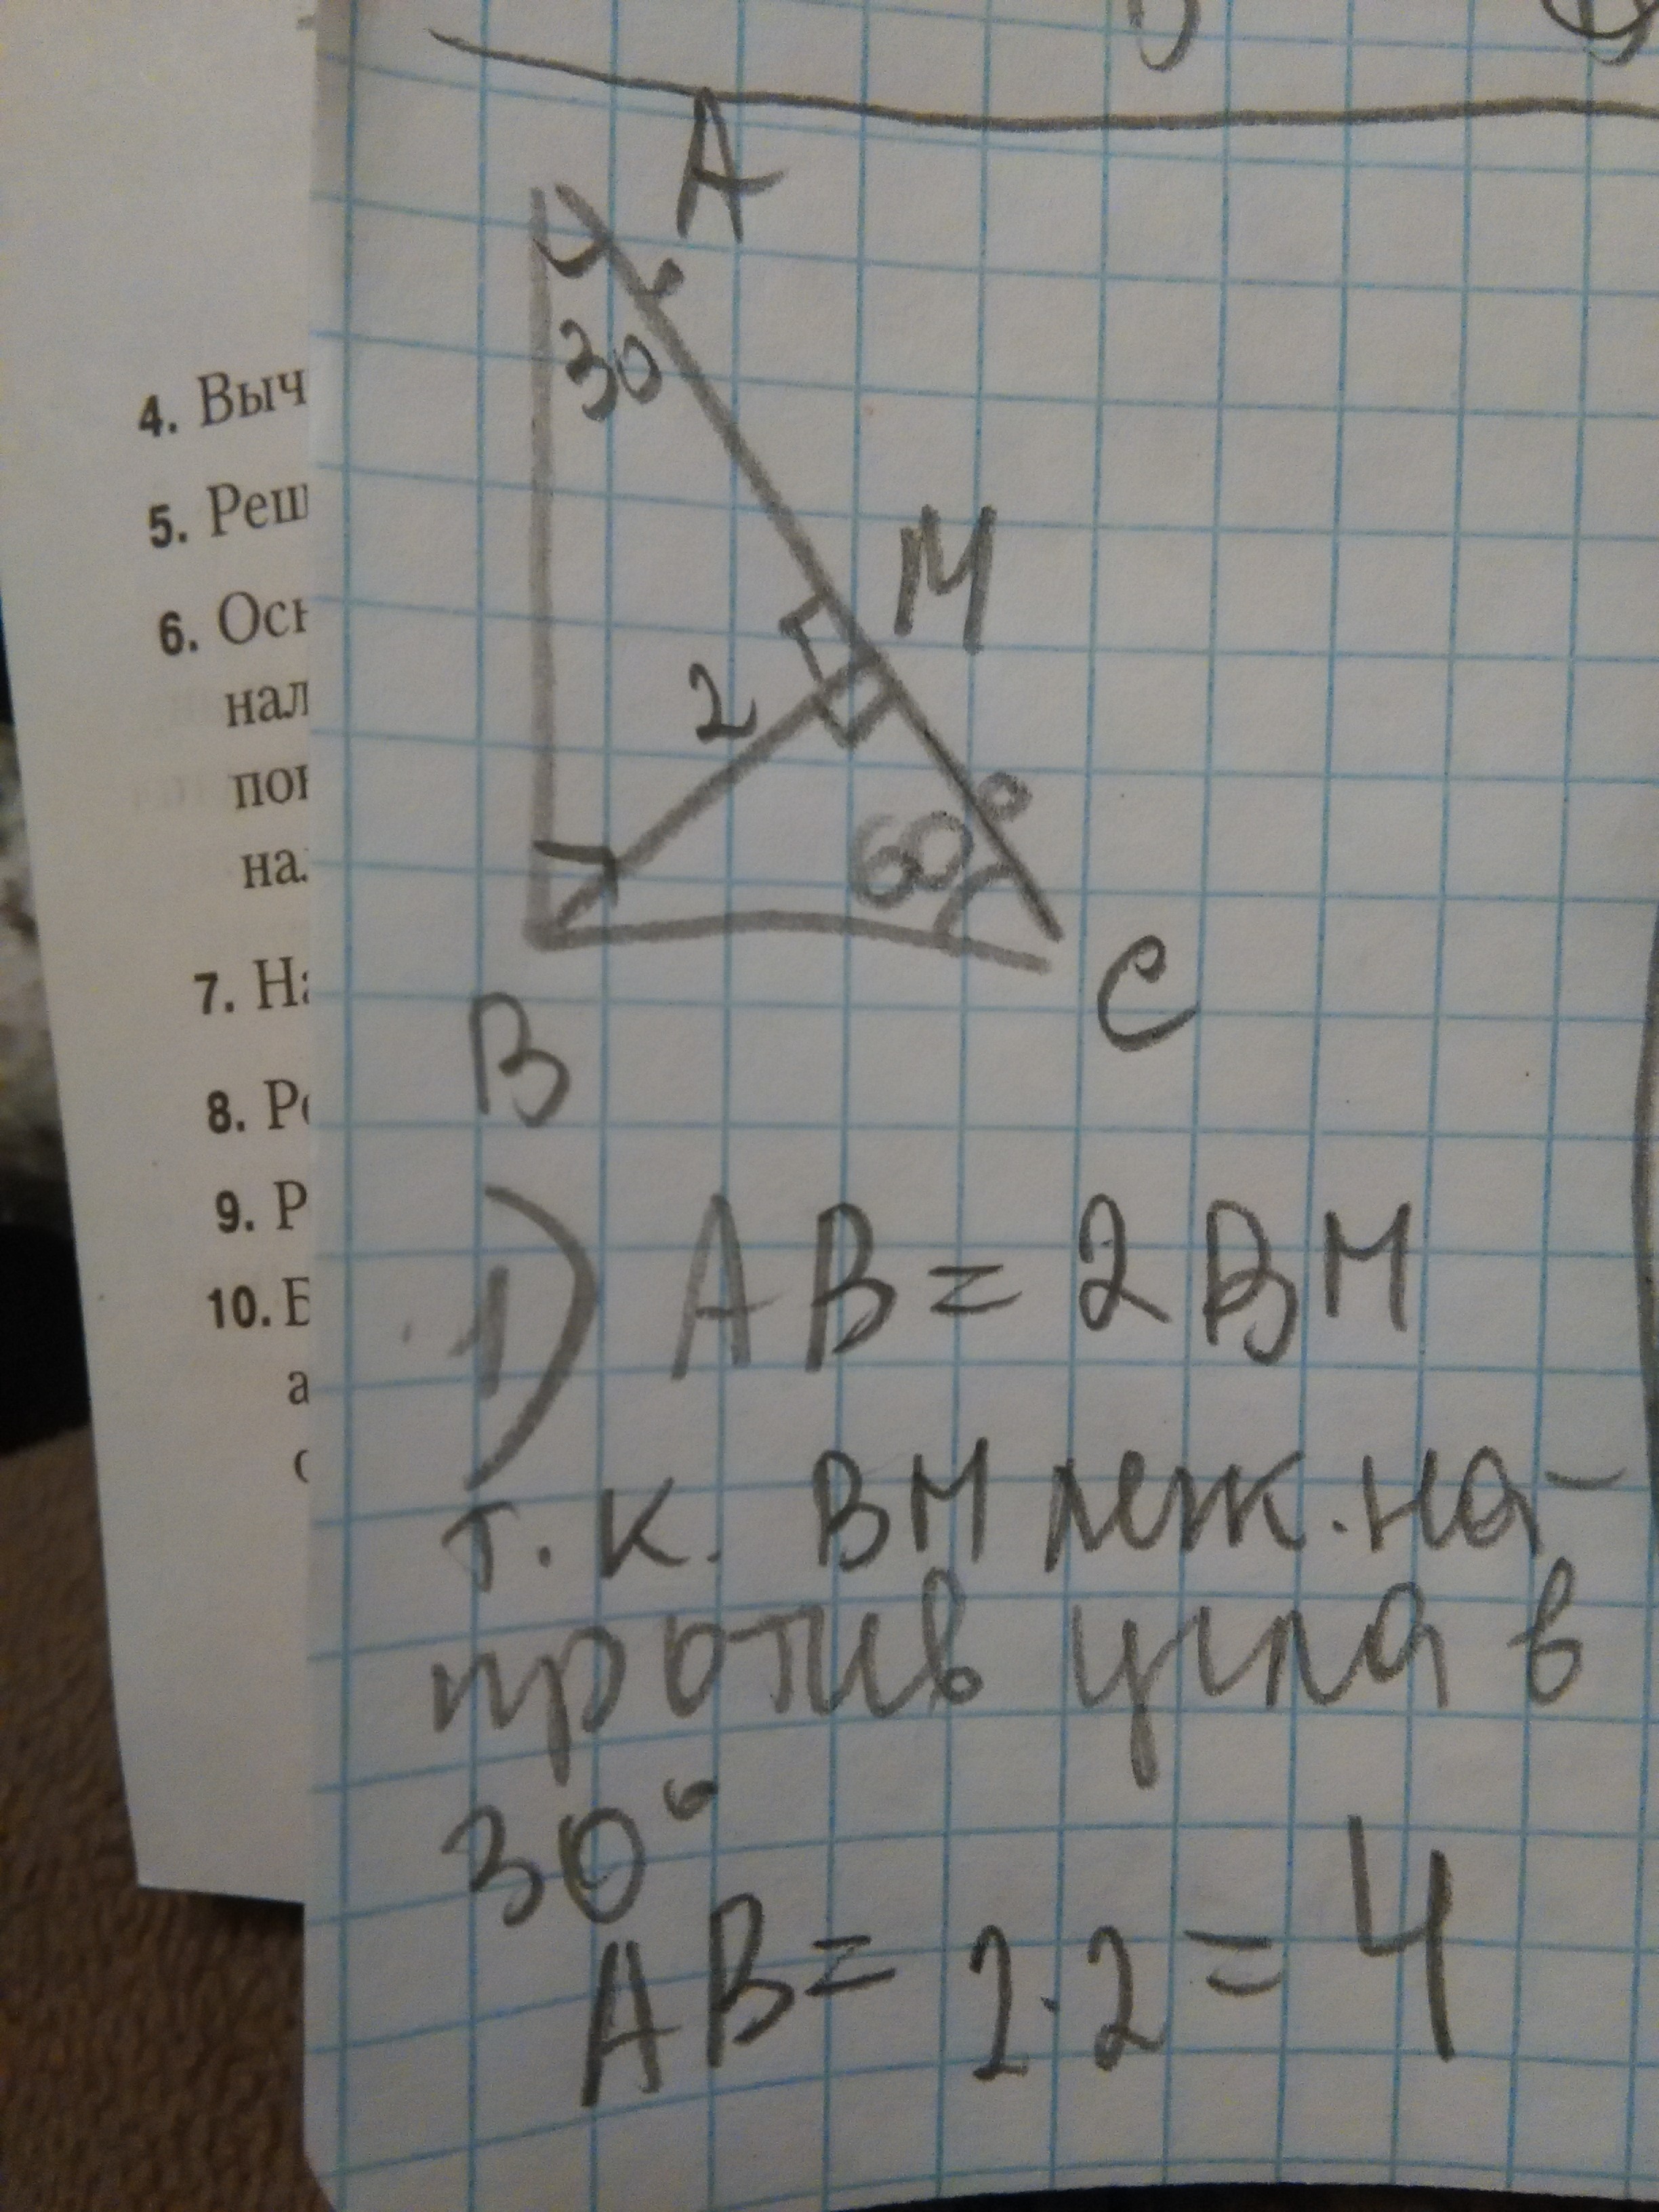 A
30°
M
2
60°
C
B
1) AB = 2BM
т.к. BM леж. на-
против угла в
30°
AB = 2·2 = 4
4. Выч
5. Реш
6. Осн
нал
пон
на
7. На
8. Ре
9. Р
10. Б
а
с